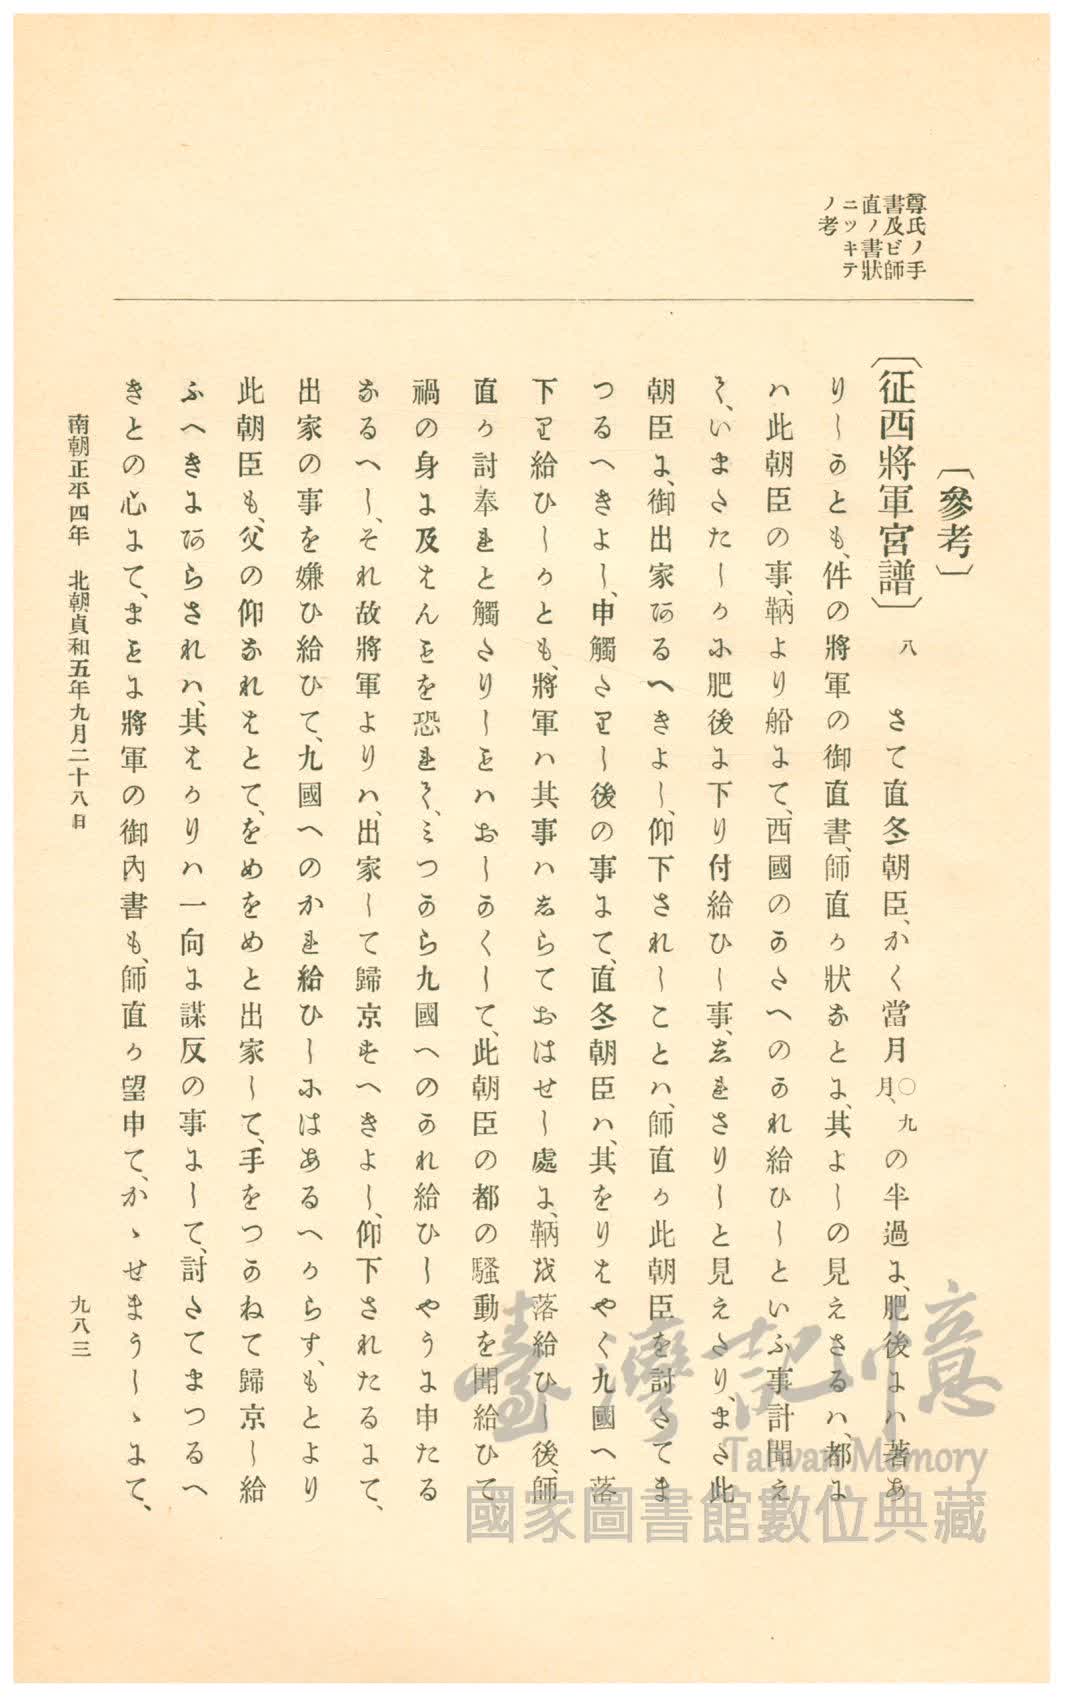 尊氏ノ手
書及ビ師
直ノ書狀
ニツキテ
ノ考
〔參考〕
〔征西將軍宮譜〕 八 さて直冬朝臣、かく當月〇九月、の半過に、肥後にハ著あ
りしかとも、件の將軍の御直書、師直か狀なとに、其よしの見えさるハ、都に
ハ此朝臣の事、鞆より船にて、西國のかたへのかれ給ひしといふ事計聞え
て、いまたたしかに肥後に下り付給ひし事、しれさりしと見えたり、また此
朝臣に、御出家あるへきよし、仰下されしことハ、師直か此朝臣を討たてま
つるへきよし、申觸たりし後の事にて、直冬朝臣ハ、其をりはやく九國へ落
下り給ひしかとも、將軍ハ其事ハしらておはせし處に、鞆を落給ひし後、師
直か討奉れと觸たりしことハおしかくして、此朝臣の都の騷動を聞給ひて、
禍の身に及はんことを恐れて、みつから九國へのかれ給ひしやうに申たる
なるへし、それ故將軍よりハ、出家して歸京すへきよし、仰下されたるにて、
出家の事を嫌ひ給ひて、九國へのかれ給ひしにはあるへからす、もとより
此朝臣も、父の仰なれはとて、をめをめと出家して、手をつかねて歸京し給
ふへきにあらされハ、其はかりハ一向に謀反の事にして、討たてまつるへ
きとの心にて、まことに將軍の御內書も、師直か望申て、かゝせまうしゝにて、
南朝正平四年 北朝貞和五年九月二十八日
九八三
臺灣記憶
Taiwan Memory
國家圖書館數位典藏